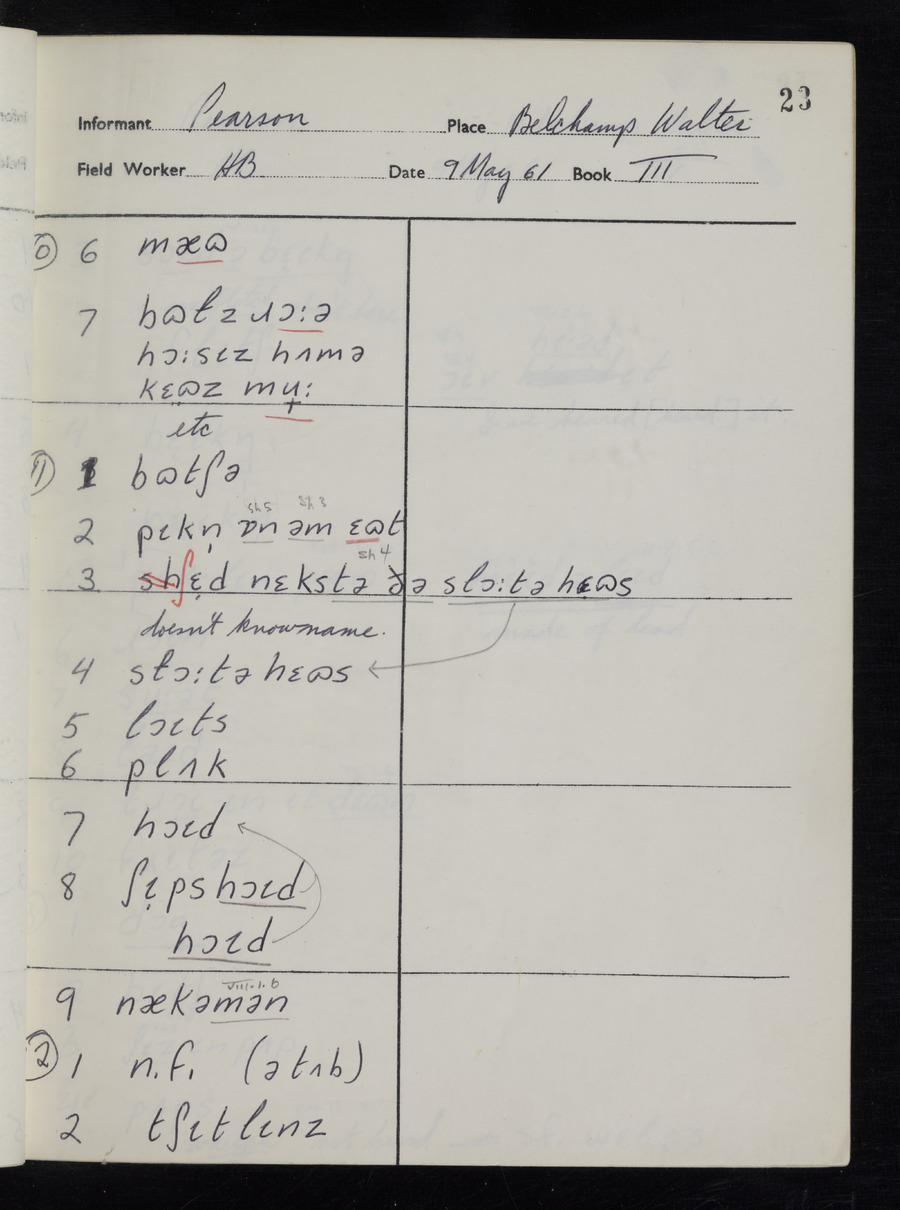 23
Informant Pearson Place Belchamp Walter
Field Worker HB Date 9 May 61 Book III
10 6 mæɷ
7 bɷɫz ɹɔːə
hɔːsɪz hʌmə
kɛ̈ɷz mʉ̞ː
etc
11 1 bɷtʃə
sh 5 sh 3
2 pɪkn̩ ɒn əm ɛɷt
sh 4
3 ʃɛ̣d nɛkstə ðə slɔːtə hɛɷs
doesn't know name.
4 slɔːtə hɛɷs
5 lɔɪts
6 plʌk
7 hɔɪd
8 ʃɪ̣ps hɔɪd
hɔɪd
VIII.1.6
9 nækəmən
12 1 n.f. (ə tʌb)
2 tʃɪtlɪnz